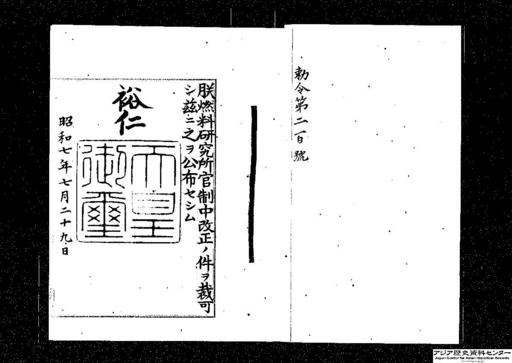 勅令第二百號
朕燃料研究所官制中改正ノ件ヲ裁可
シ茲ニ之ヲ公布セシム
裕仁
天皇
御璽
昭和七年七月二十九日
アジア歴史資料センター
Japan Center for Asian Historical Records